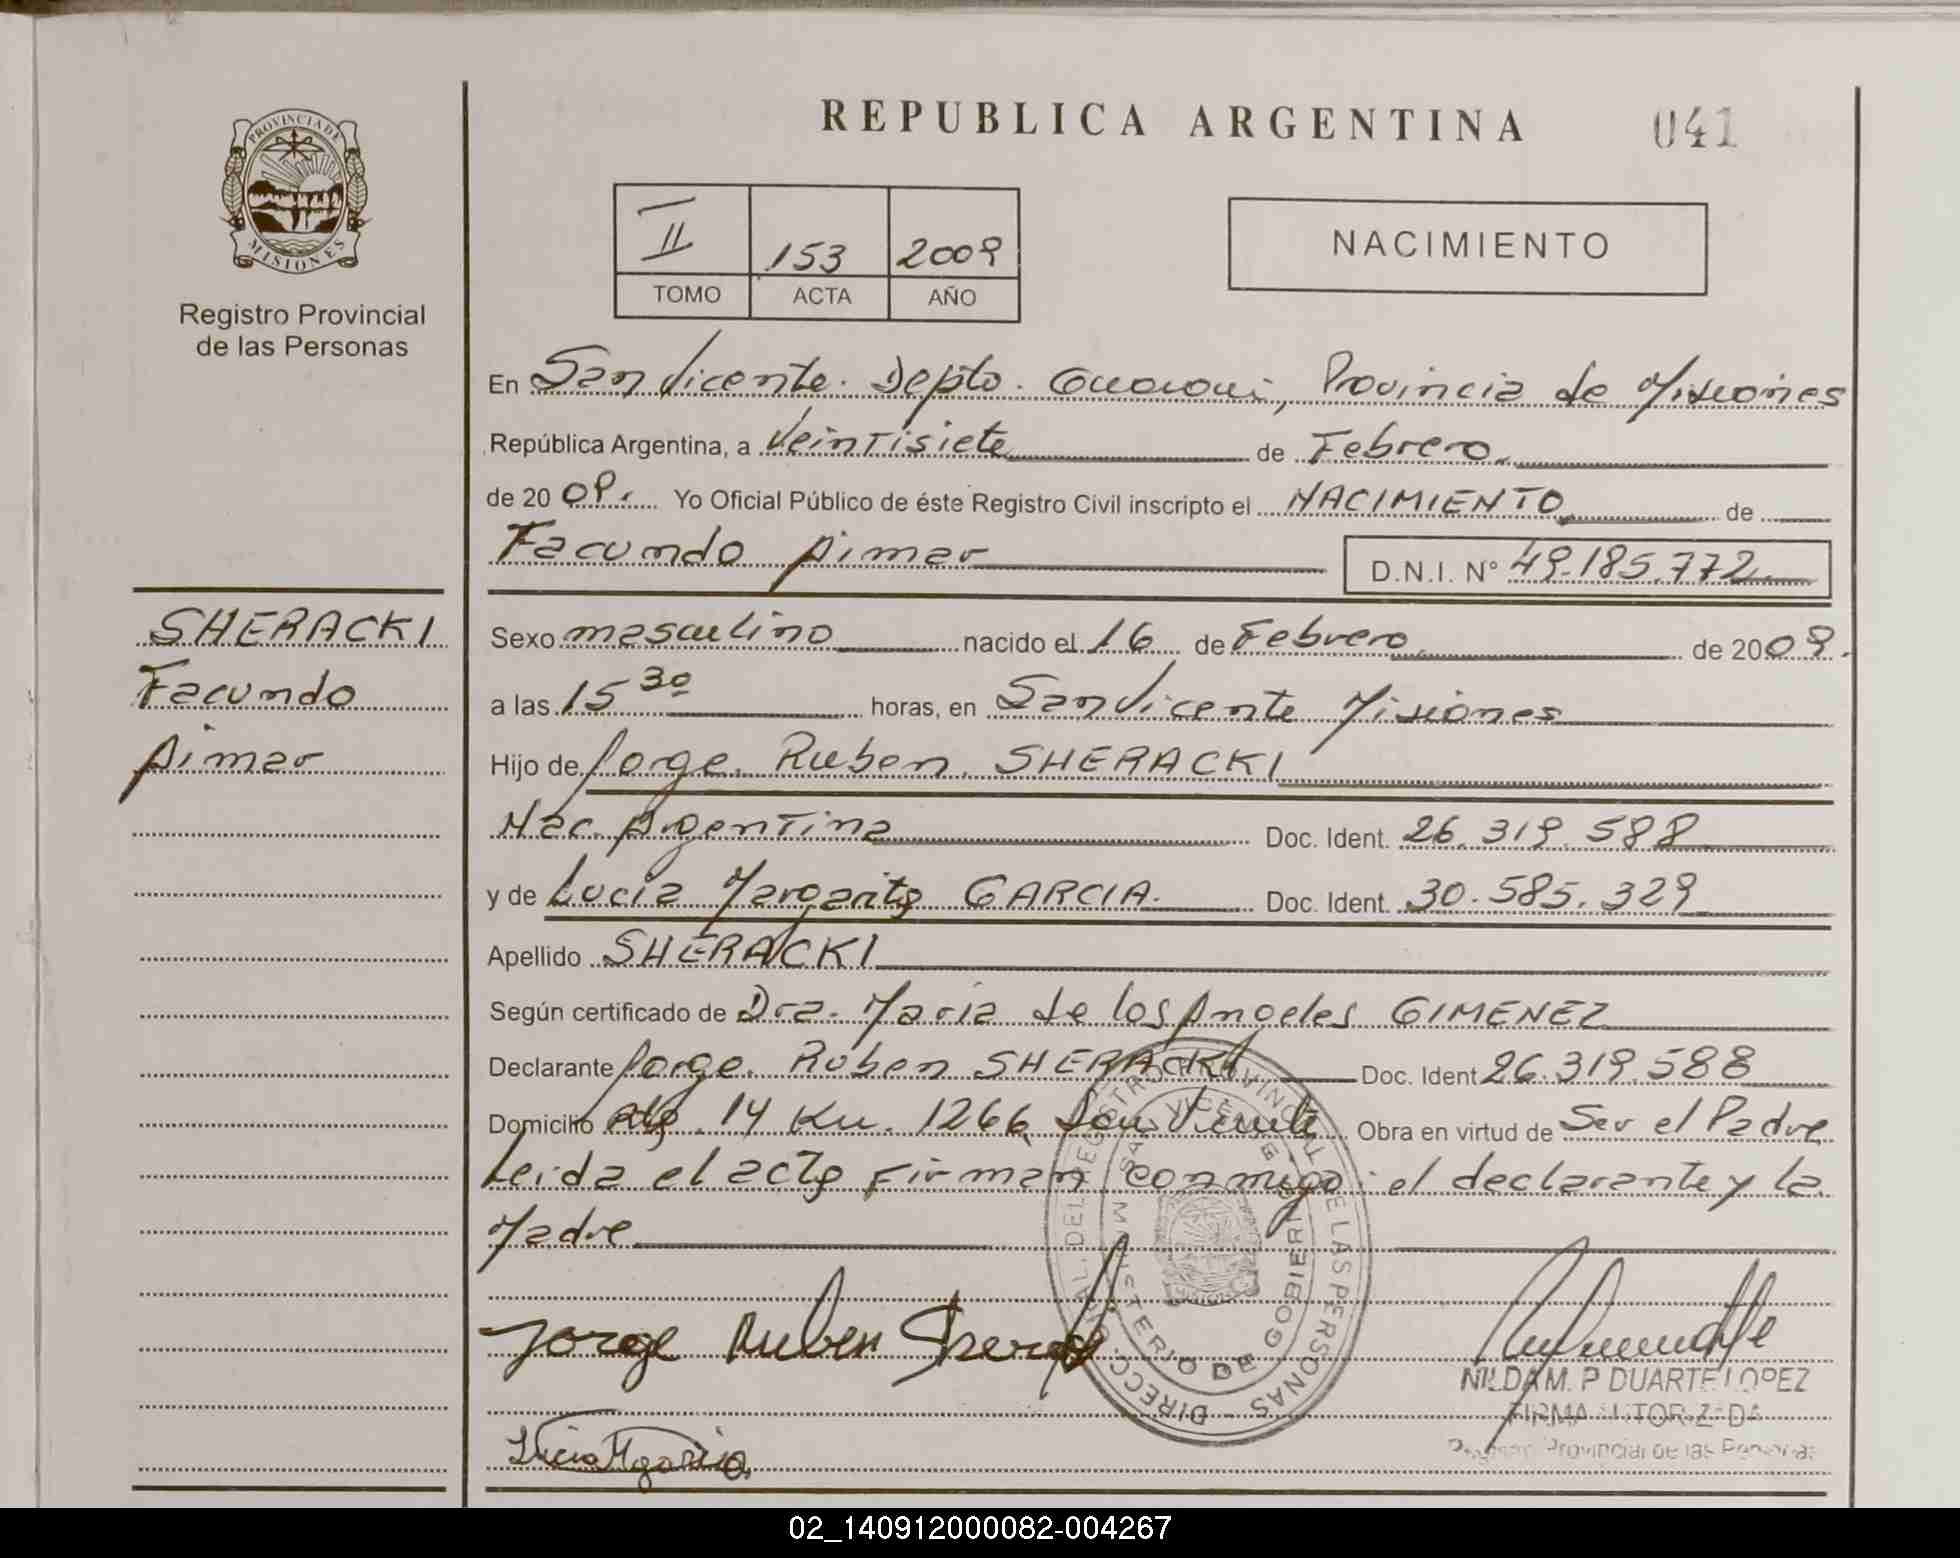 REPUBLICA ARGENTINA 041
PROVINCIA DE MISIONES
Registro Provincial
de las Personas
II 153 2009
TOMO ACTA AÑO
NACIMIENTO
En San Vicente. Depto. Guaraní, Provincia de Misiones
República Argentina, a Veintisiete de Febrero
de 20 09. Yo Oficial Público de éste Registro Civil inscripto el NACIMIENTO de
Facundo Aimar D.N.I. N° 49.185.772
SHERACKI
Facundo
Aimar
Sexo masculino nacido el 16 de Febrero de 2009.
a las 15 30 horas, en San Vicente Misiones
Hijo de Jorge Ruben SHERACKI
Nac. Argentina Doc. Ident. 26.319.588
y de Lucia Margarita GARCIA. Doc. Ident. 30.585.329
Apellido SHERACKI
Según certificado de Dra. Maria de los Angeles GIMENEZ
Declarante Jorge Ruben SHERACKI Doc. Ident 26.319.588
Domicilio Rta. 14 Km. 1266 San Vicente Obra en virtud de Ser el Padre
Leida el acta Firman conmigo el declarante y la
Madre
Jorge Ruben Sheracki
NILDA M. P DUARTE LOPEZ
FIRMA AUTORIZADA
Registro Provincial de las Personas
Lucia M garcia
DIRECC. GRAL. DEL REGISTRO PROVINCIAL DE LAS PERSONAS
MINISTERIO DE GOBIERNO
SAN VICENTE
02_140912000082-004267